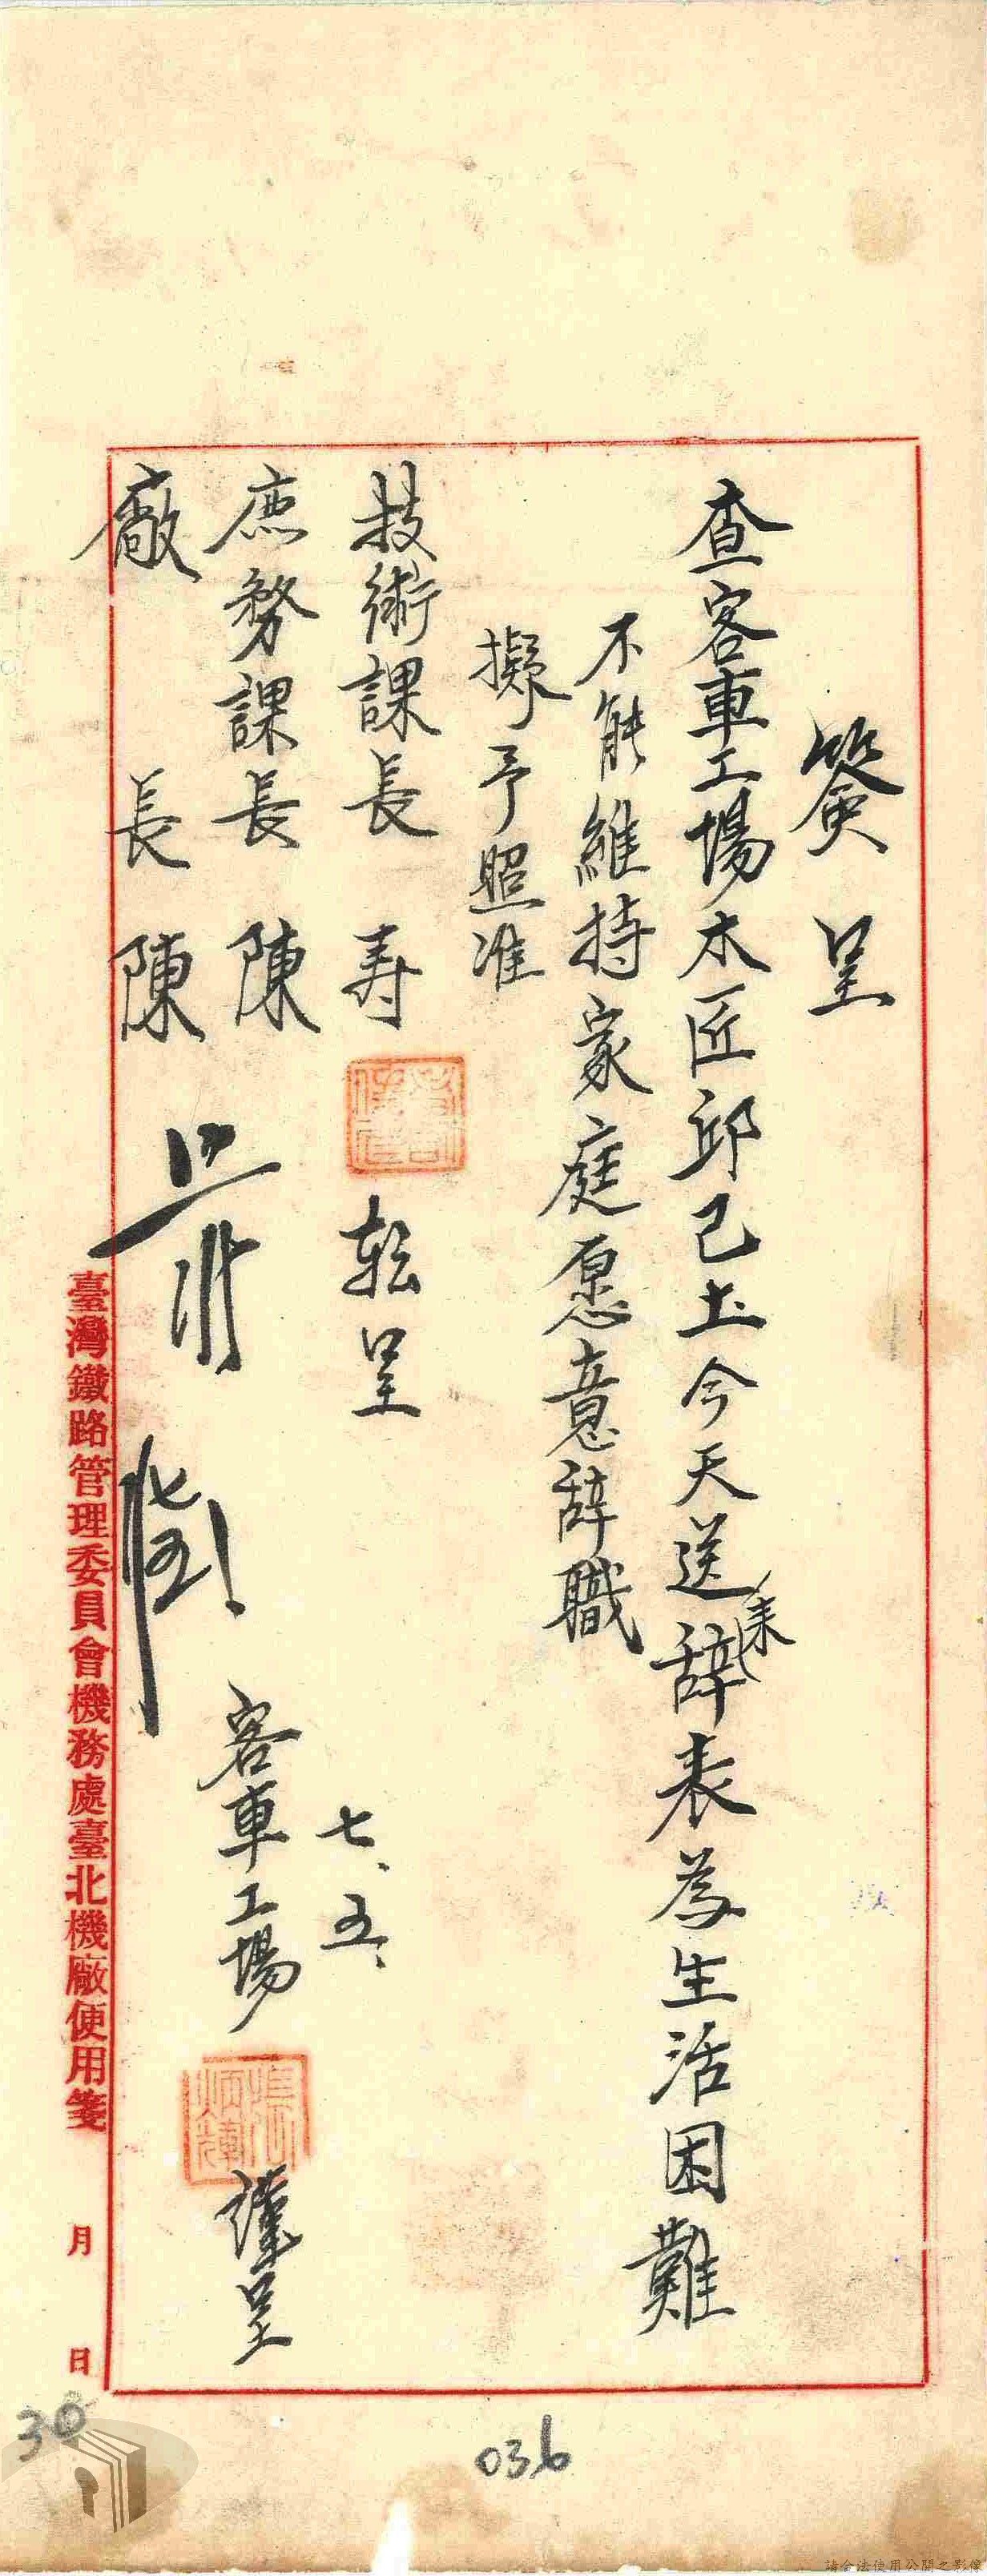 簽呈
查客車工場木匠邱己土今天送来辞表為生活困難
不能維持家庭愿意辞職
擬予照准
技術課長 寿 転呈
庶務課長 陳
廠長 陳
七、五、
客車工場 張炳輝 謹呈
臺灣鐵路管理委員會機務處臺北機廠使用箋 月 日
30
036
請合法使用公開之影像